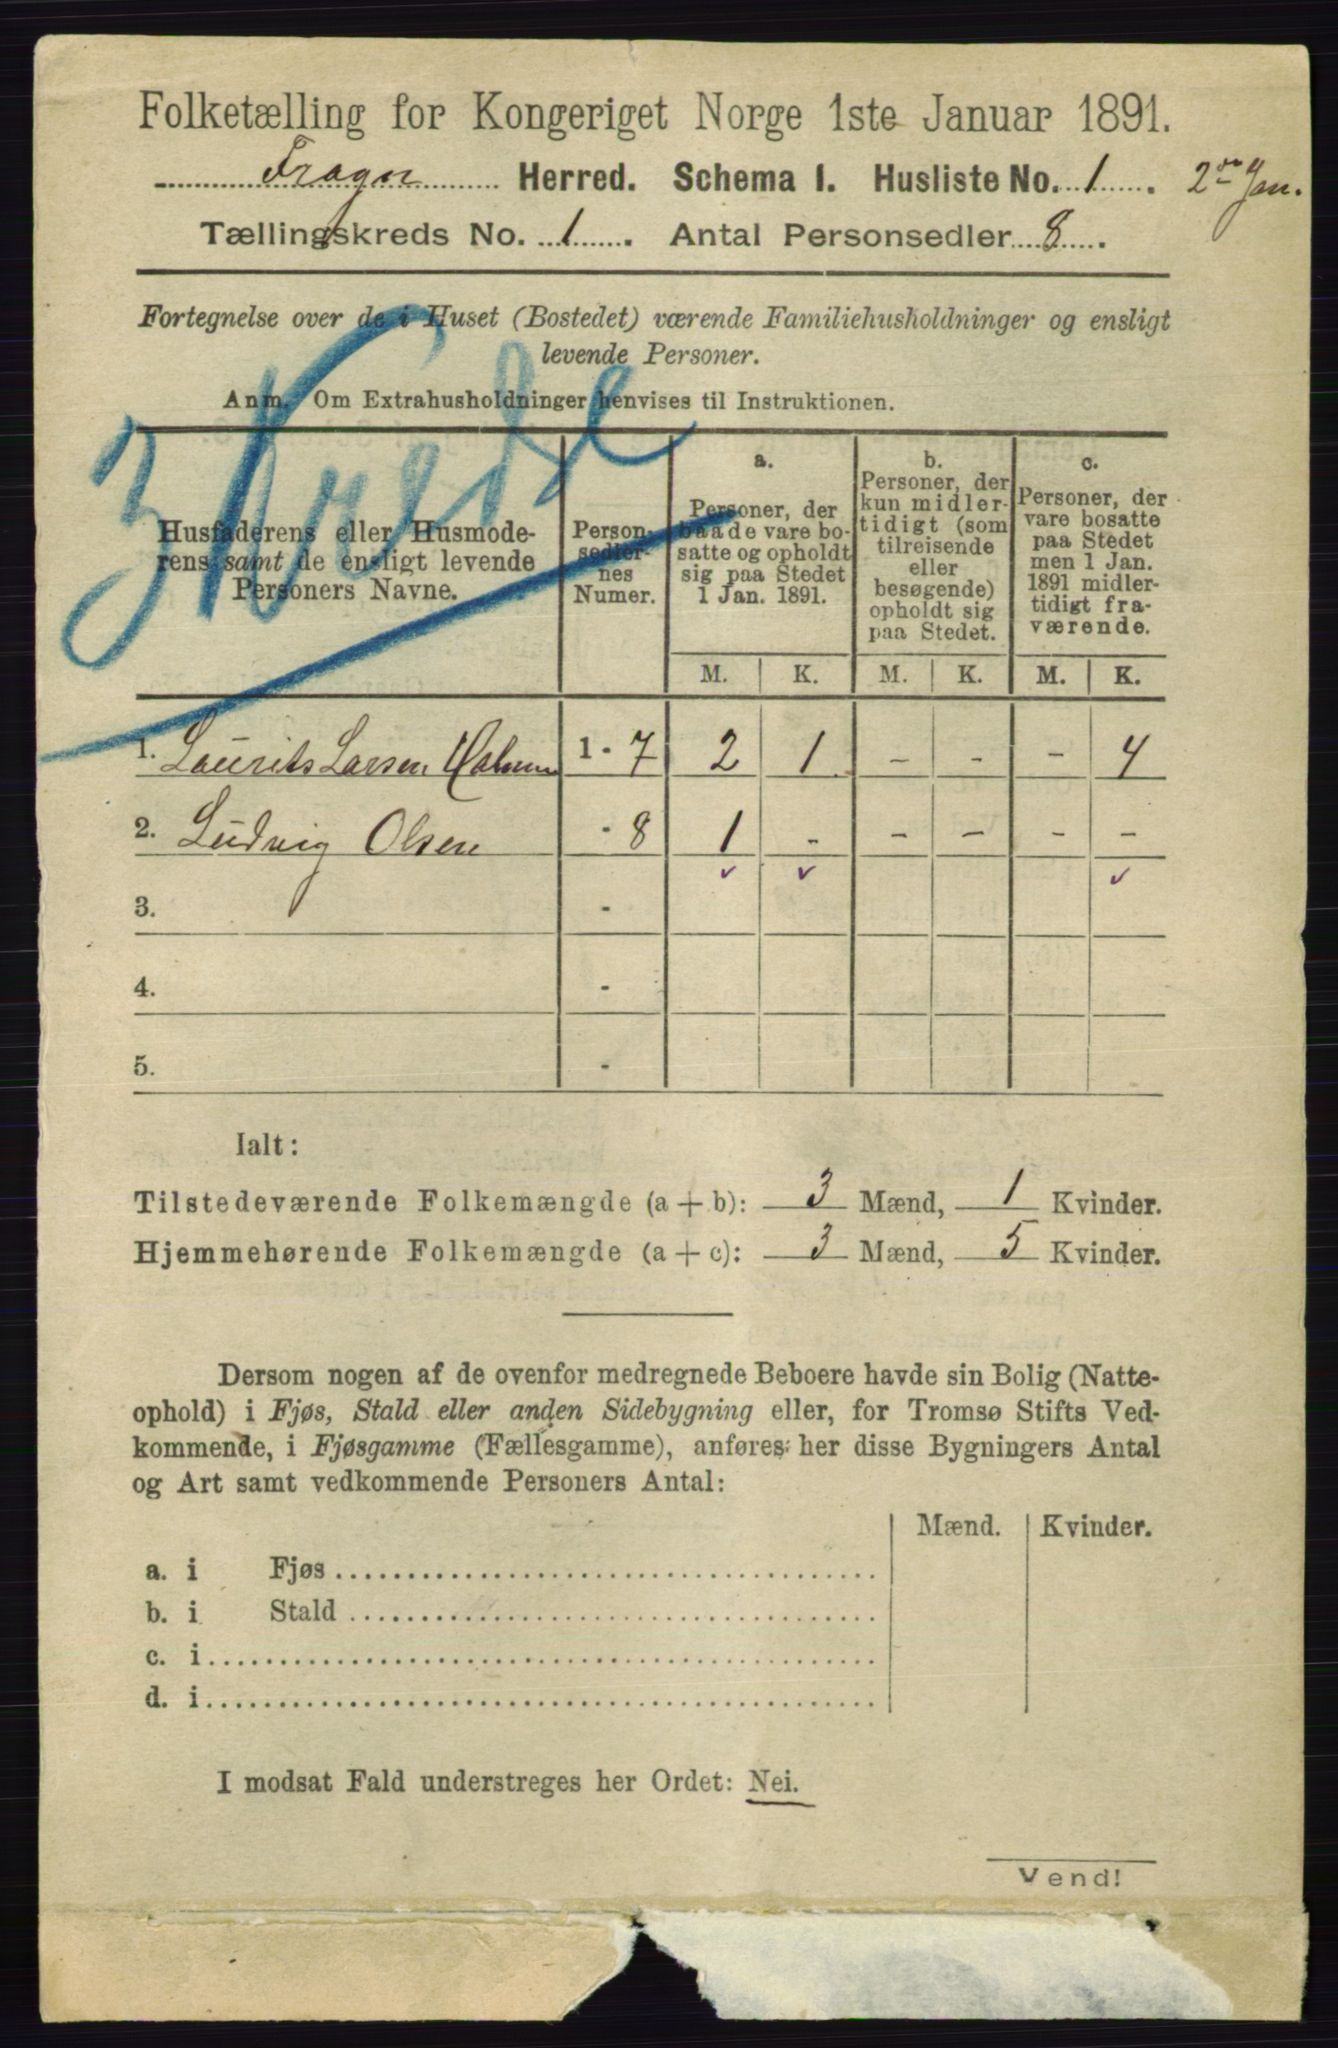 Folketælling for Kongeriget Norge 1ste Januar 1891.
Frogn Herred. Schema I. Husliste No. 1. 2den Jan.
Tællingskreds No. 1. Antal Personsedler 8.
Fortegnelse over de i Huset (Bostedet) værende Familiehusholdninger og ensligt
levende Personer.
Anm. Om Extrahusholdninger henvises til Instruktionen.
3 Kreds
Husfaderens eller Husmode-
rens samt de ensligt levende
Personers Navne.
Person-
sedler-
nes
Numer.
a.
Personer, der
baade vare bo-
satte og opholdt
sig paa Stedet
1 Jan. 1891.
b.
Personer, der
kun midler-
tidigt (som
tilreisende
eller
besøgende)
opholdt sig
paa Stedet.
c.
Personer, der
vare bosatte
paa Stedet
men 1 Jan.
1891 midler-
tidigt fra-
værende.
M. K. M. K. M. K.
1. Laurits Larsen 1 - 7 2 1 - - - 4
2. Ludvig Olsen - 8 1 - - - - -
3. -
4. -
5. -
Ialt:
Tilstedeværende Folkemængde (a + b): 3 Mænd, 1 Kvinder.
Hjemmehørende Folkemængde (a + c): 3 Mænd, 5 Kvinder.
Dersom nogen af de ovenfor medregnede Beboere havde sin Bolig (Natte-
ophold) i Fjøs, Stald eller anden Sidebygning eller, for Tromsø Stifts Ved-
kommende, i Fjøsgamme (Fællesgamme), anføres her disse Bygningers Antal
og Art samt vedkommende Personers Antal:
Mænd. Kvinder.
a. i Fjøs
b. i Stald
c. i
d. i
I modsat Fald understreges her Ordet: Nei.
Vend!